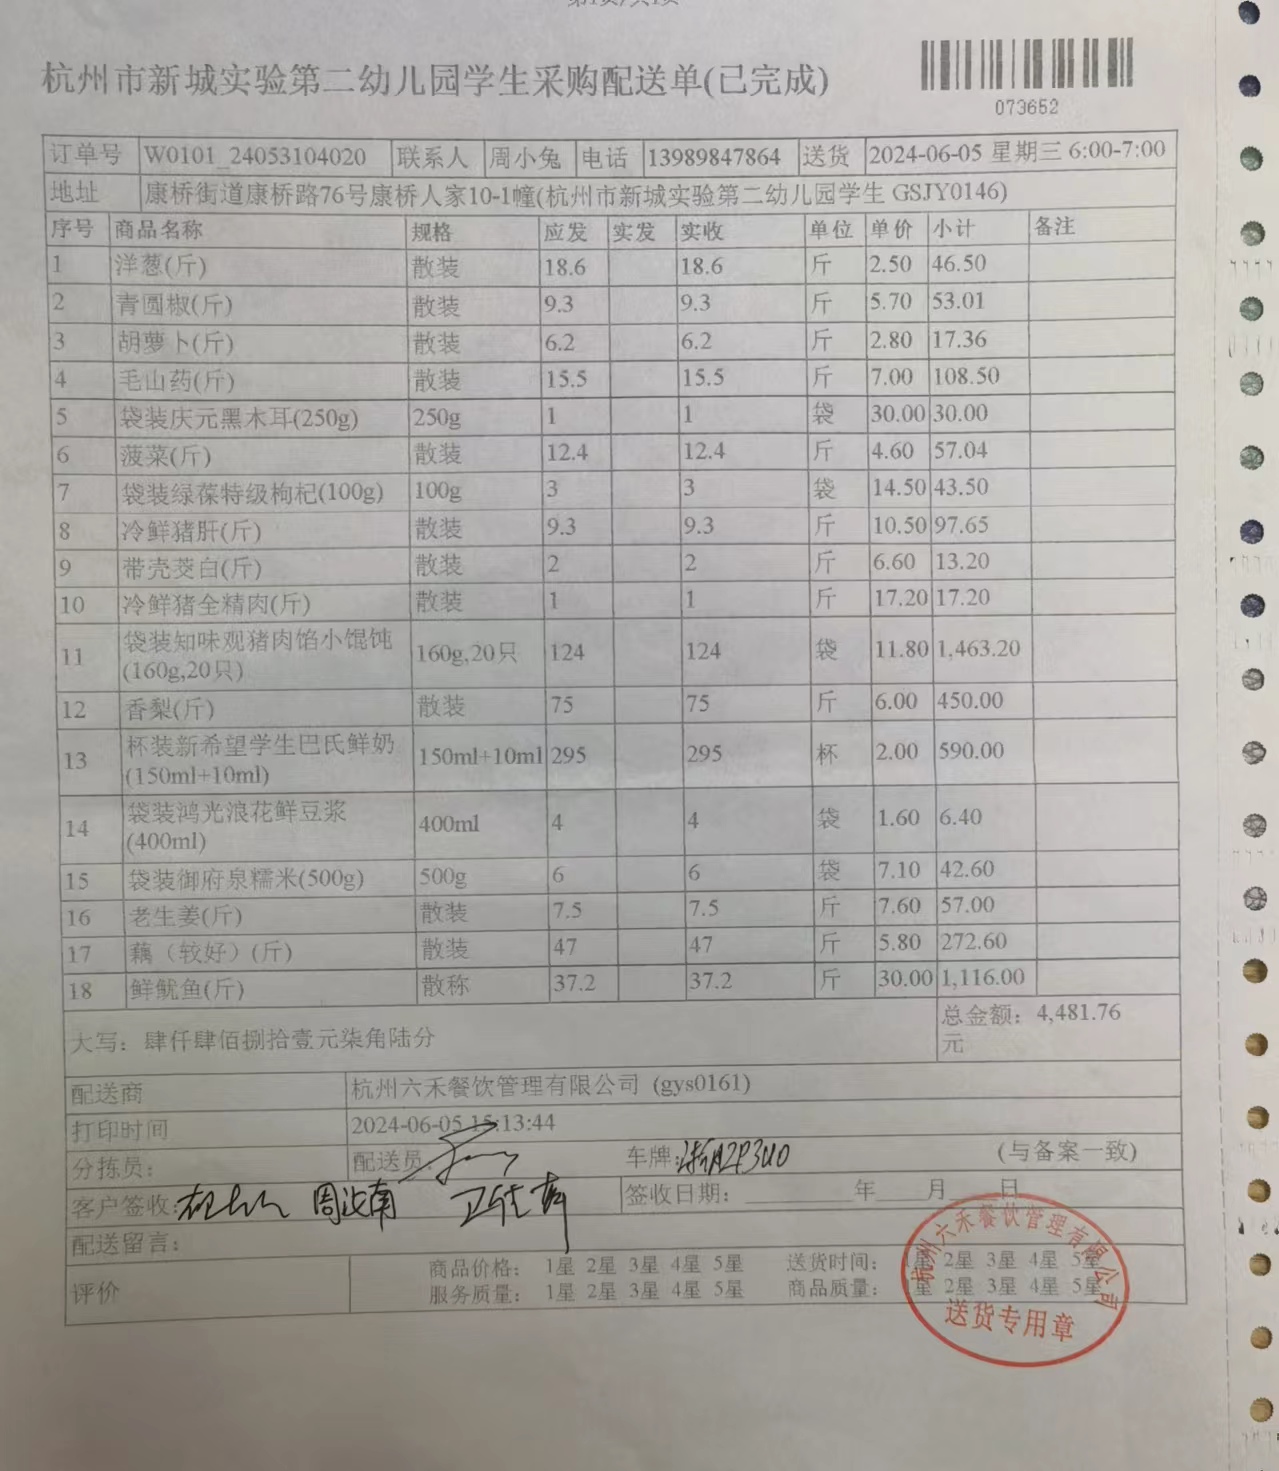 杭州市新城实验第二幼儿园学生采购配送单(已完成)
073652
订单号 W0101_24053104020 联系人 周小兔 电话 13989847864 送货 2024-06-05 星期三 6:00-7:00
地址 康桥街道康桥路76号康桥人家10-1幢(杭州市新城实验第二幼儿园学生 GSJY0146)
序号 商品名称 规格 应发 实发 实收 单位 单价 小计 备注
1 洋葱(斤) 散装 18.6 18.6 斤 2.50 46.50
2 青圆椒(斤) 散装 9.3 9.3 斤 5.70 53.01
3 胡萝卜(斤) 散装 6.2 6.2 斤 2.80 17.36
4 毛山药(斤) 散装 15.5 15.5 斤 7.00 108.50
5 袋装庆元黑木耳(250g) 250g 1 1 袋 30.00 30.00
6 菠菜(斤) 散装 12.4 12.4 斤 4.60 57.04
7 袋装绿葆特级枸杞(100g) 100g 3 3 袋 14.50 43.50
8 冷鲜猪肝(斤) 散装 9.3 9.3 斤 10.50 97.65
9 带壳茭白(斤) 散装 2 2 斤 6.60 13.20
10 冷鲜猪全精肉(斤) 散装 1 1 斤 17.20 17.20
11 袋装知味观猪肉馅小馄饨 160g,20只 124 124 袋 11.80 1,463.20
(160g,20只)
12 香梨(斤) 散装 75 75 斤 6.00 450.00
13 杯装新希望学生巴氏鲜奶 150ml+10ml 295 295 杯 2.00 590.00
(150ml+10ml)
14 袋装鸿光浪花鲜豆浆 400ml 4 4 袋 1.60 6.40
(400ml)
15 袋装御府泉糯米(500g) 500g 6 6 袋 7.10 42.60
16 老生姜(斤) 散装 7.5 7.5 斤 7.60 57.00
17 藕（较好）(斤) 散装 47 47 斤 5.80 272.60
18 鲜鱿鱼(斤) 散称 37.2 37.2 斤 30.00 1,116.00
大写：肆仟肆佰捌拾壹元柒角陆分 总金额：4,481.76
元
配送商 杭州六禾餐饮管理有限公司 (gys0161)
打印时间 2024-06-05 15:13:44
分拣员： 配送员： 车牌： (与备案一致)
客户签收： 签收日期：________年____月____日
配送留言：
评价 商品价格： 1星 2星 3星 4星 5星 送货时间： 1星 2星 3星 4星 5星
服务质量： 1星 2星 3星 4星 5星 商品质量： 1星 2星 3星 4星 5星
杭州六禾餐饮管理有限公司
送货专用章